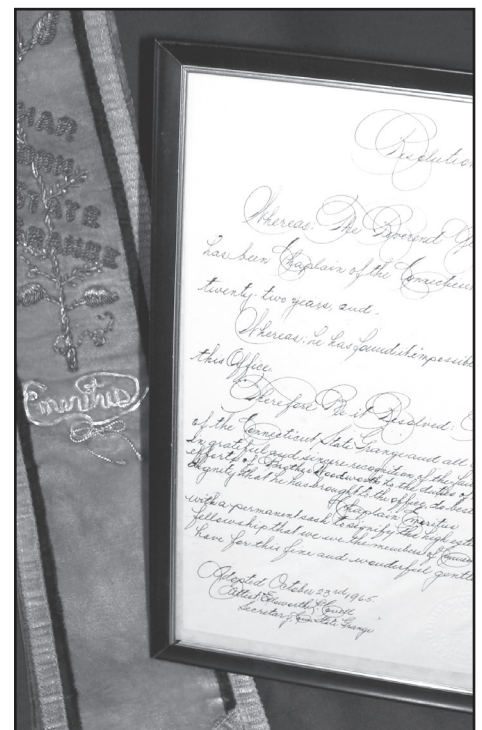 HAP
CONN.
STATE
GRANGE
Emeritus
Resolution
Whereas: The Reverend
has been Chaplain of the Connecticut
twenty-two years, and.
Whereas: he has found it impossible
this Office.
Therefore Be it Resolved:
of the Connecticut State Grange and all
In grateful and sincere recognition of the
efforts of Woodworth to the duties of
dignity that he has brought to the office, do
of Chaplain Emeritus
with a permanent sash to signify the high
fellowship that we the members of
have for this fine and wonderful
Adopted October 23rd, 1965.
Attest: Ellsworth
Secretary, Conn State Grange